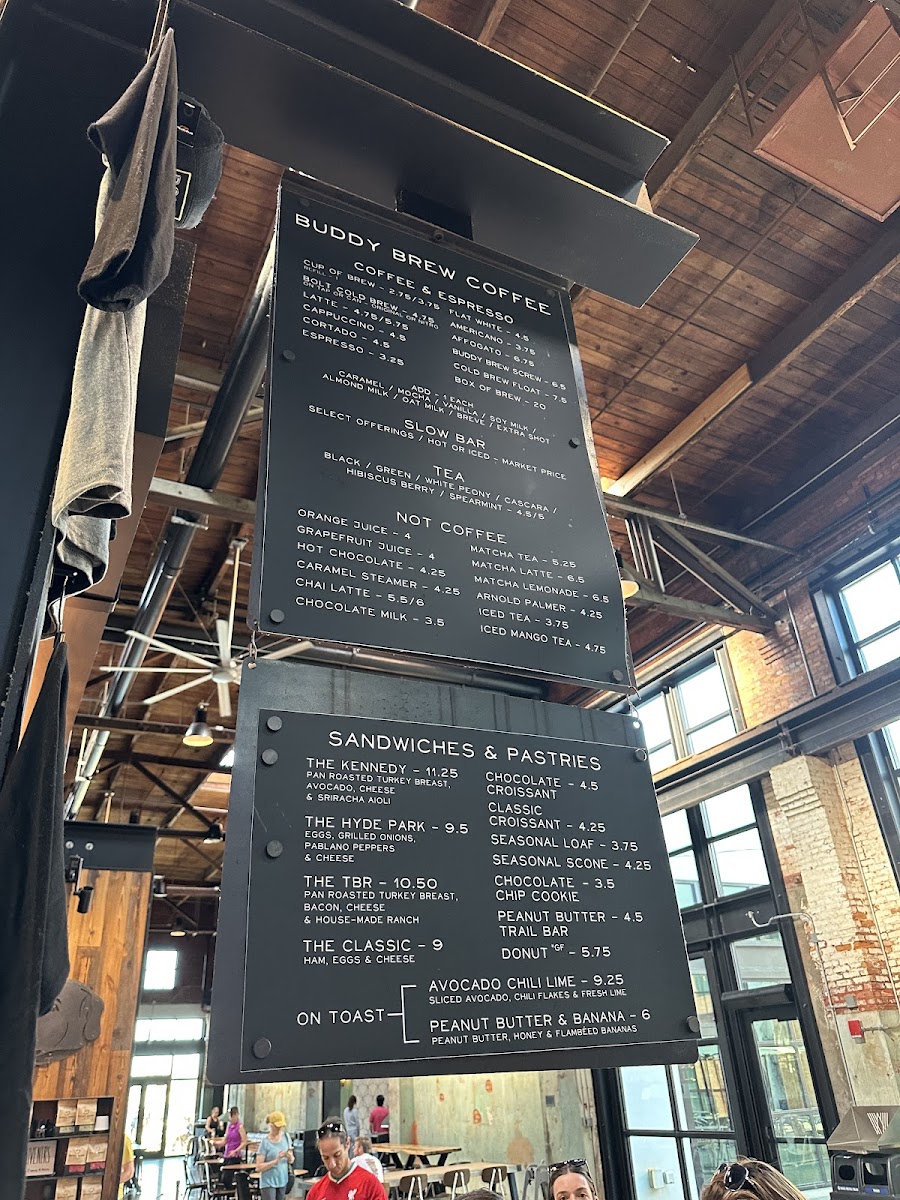 BUDDY BREW COFFEE
COFFEE & ESPRESSO
CUP OF BREW - 2.75/3.75
REFILL - 1
BOLT COLD BREW - 4.75
ON TAP OR CAN - ORIGINAL OR NITRO
LATTE - 4.75/5.75
CAPPUCCINO - 4.5
CORTADO - 4.5
ESPRESSO - 3.25
FLAT WHITE - 4.5
AMERICANO - 3.75
AFFOGATO - 6.75
BUDDY BREW SCREW - 6.5
COLD BREW FLOAT - 7.5
BOX OF BREW - 20
ADD - 1 EACH
CARAMEL / MOCHA / VANILLA / SOY MILK /
ALMOND MILK / OAT MILK / BREVE / EXTRA SHOT
SLOW BAR
SELECT OFFERINGS / HOT OR ICED - MARKET PRICE
TEA
BLACK / GREEN / WHITE PEONY / CASCARA /
HIBISCUS BERRY / SPEARMINT - 4.5/5
NOT COFFEE
ORANGE JUICE - 4
GRAPEFRUIT JUICE - 4
HOT CHOCOLATE - 4.25
CARAMEL STEAMER - 4.25
CHAI LATTE - 5.5/6
CHOCOLATE MILK - 3.5
MATCHA TEA - 5.25
MATCHA LATTE - 6.5
MATCHA LEMONADE - 6.5
ARNOLD PALMER - 4.25
ICED TEA - 3.75
ICED MANGO TEA - 4.75
SANDWICHES & PASTRIES
THE KENNEDY - 11.25
PAN ROASTED TURKEY BREAST,
AVOCADO, CHEESE
& SRIRACHA AIOLI
THE HYDE PARK - 9.5
EGGS, GRILLED ONIONS,
PABLANO PEPPERS
& CHEESE
THE TBR - 10.50
PAN ROASTED TURKEY BREAST,
BACON, CHEESE
& HOUSE-MADE RANCH
THE CLASSIC - 9
HAM, EGGS & CHEESE
CHOCOLATE - 4.5
CROISSANT
CLASSIC
CROISSANT - 4.25
SEASONAL LOAF - 3.75
SEASONAL SCONE - 4.25
CHOCOLATE - 3.5
CHIP COOKIE
PEANUT BUTTER - 4.5
TRAIL BAR
DONUT *GF - 5.75
ON TOAST
AVOCADO CHILI LIME - 9.25
SLICED AVOCADO, CHILI FLAKES & FRESH LIME
PEANUT BUTTER & BANANA - 6
PEANUT BUTTER, HONEY & FLAMBÉED BANANAS